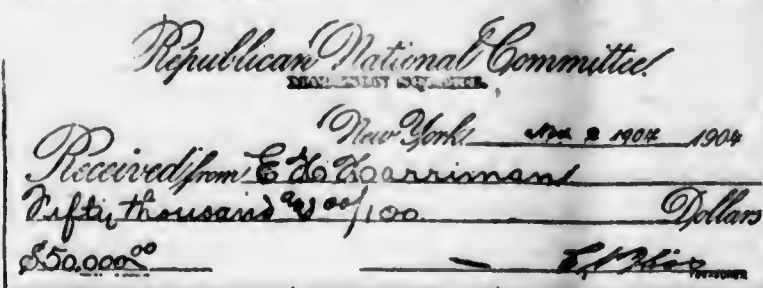 Republican National Committee
MADISON SQUARE.
New York, Nov 2 1904 1904
Received from E H Harriman
Fifty thousand and 00/100 Dollars
$50.000 00
TREASURER